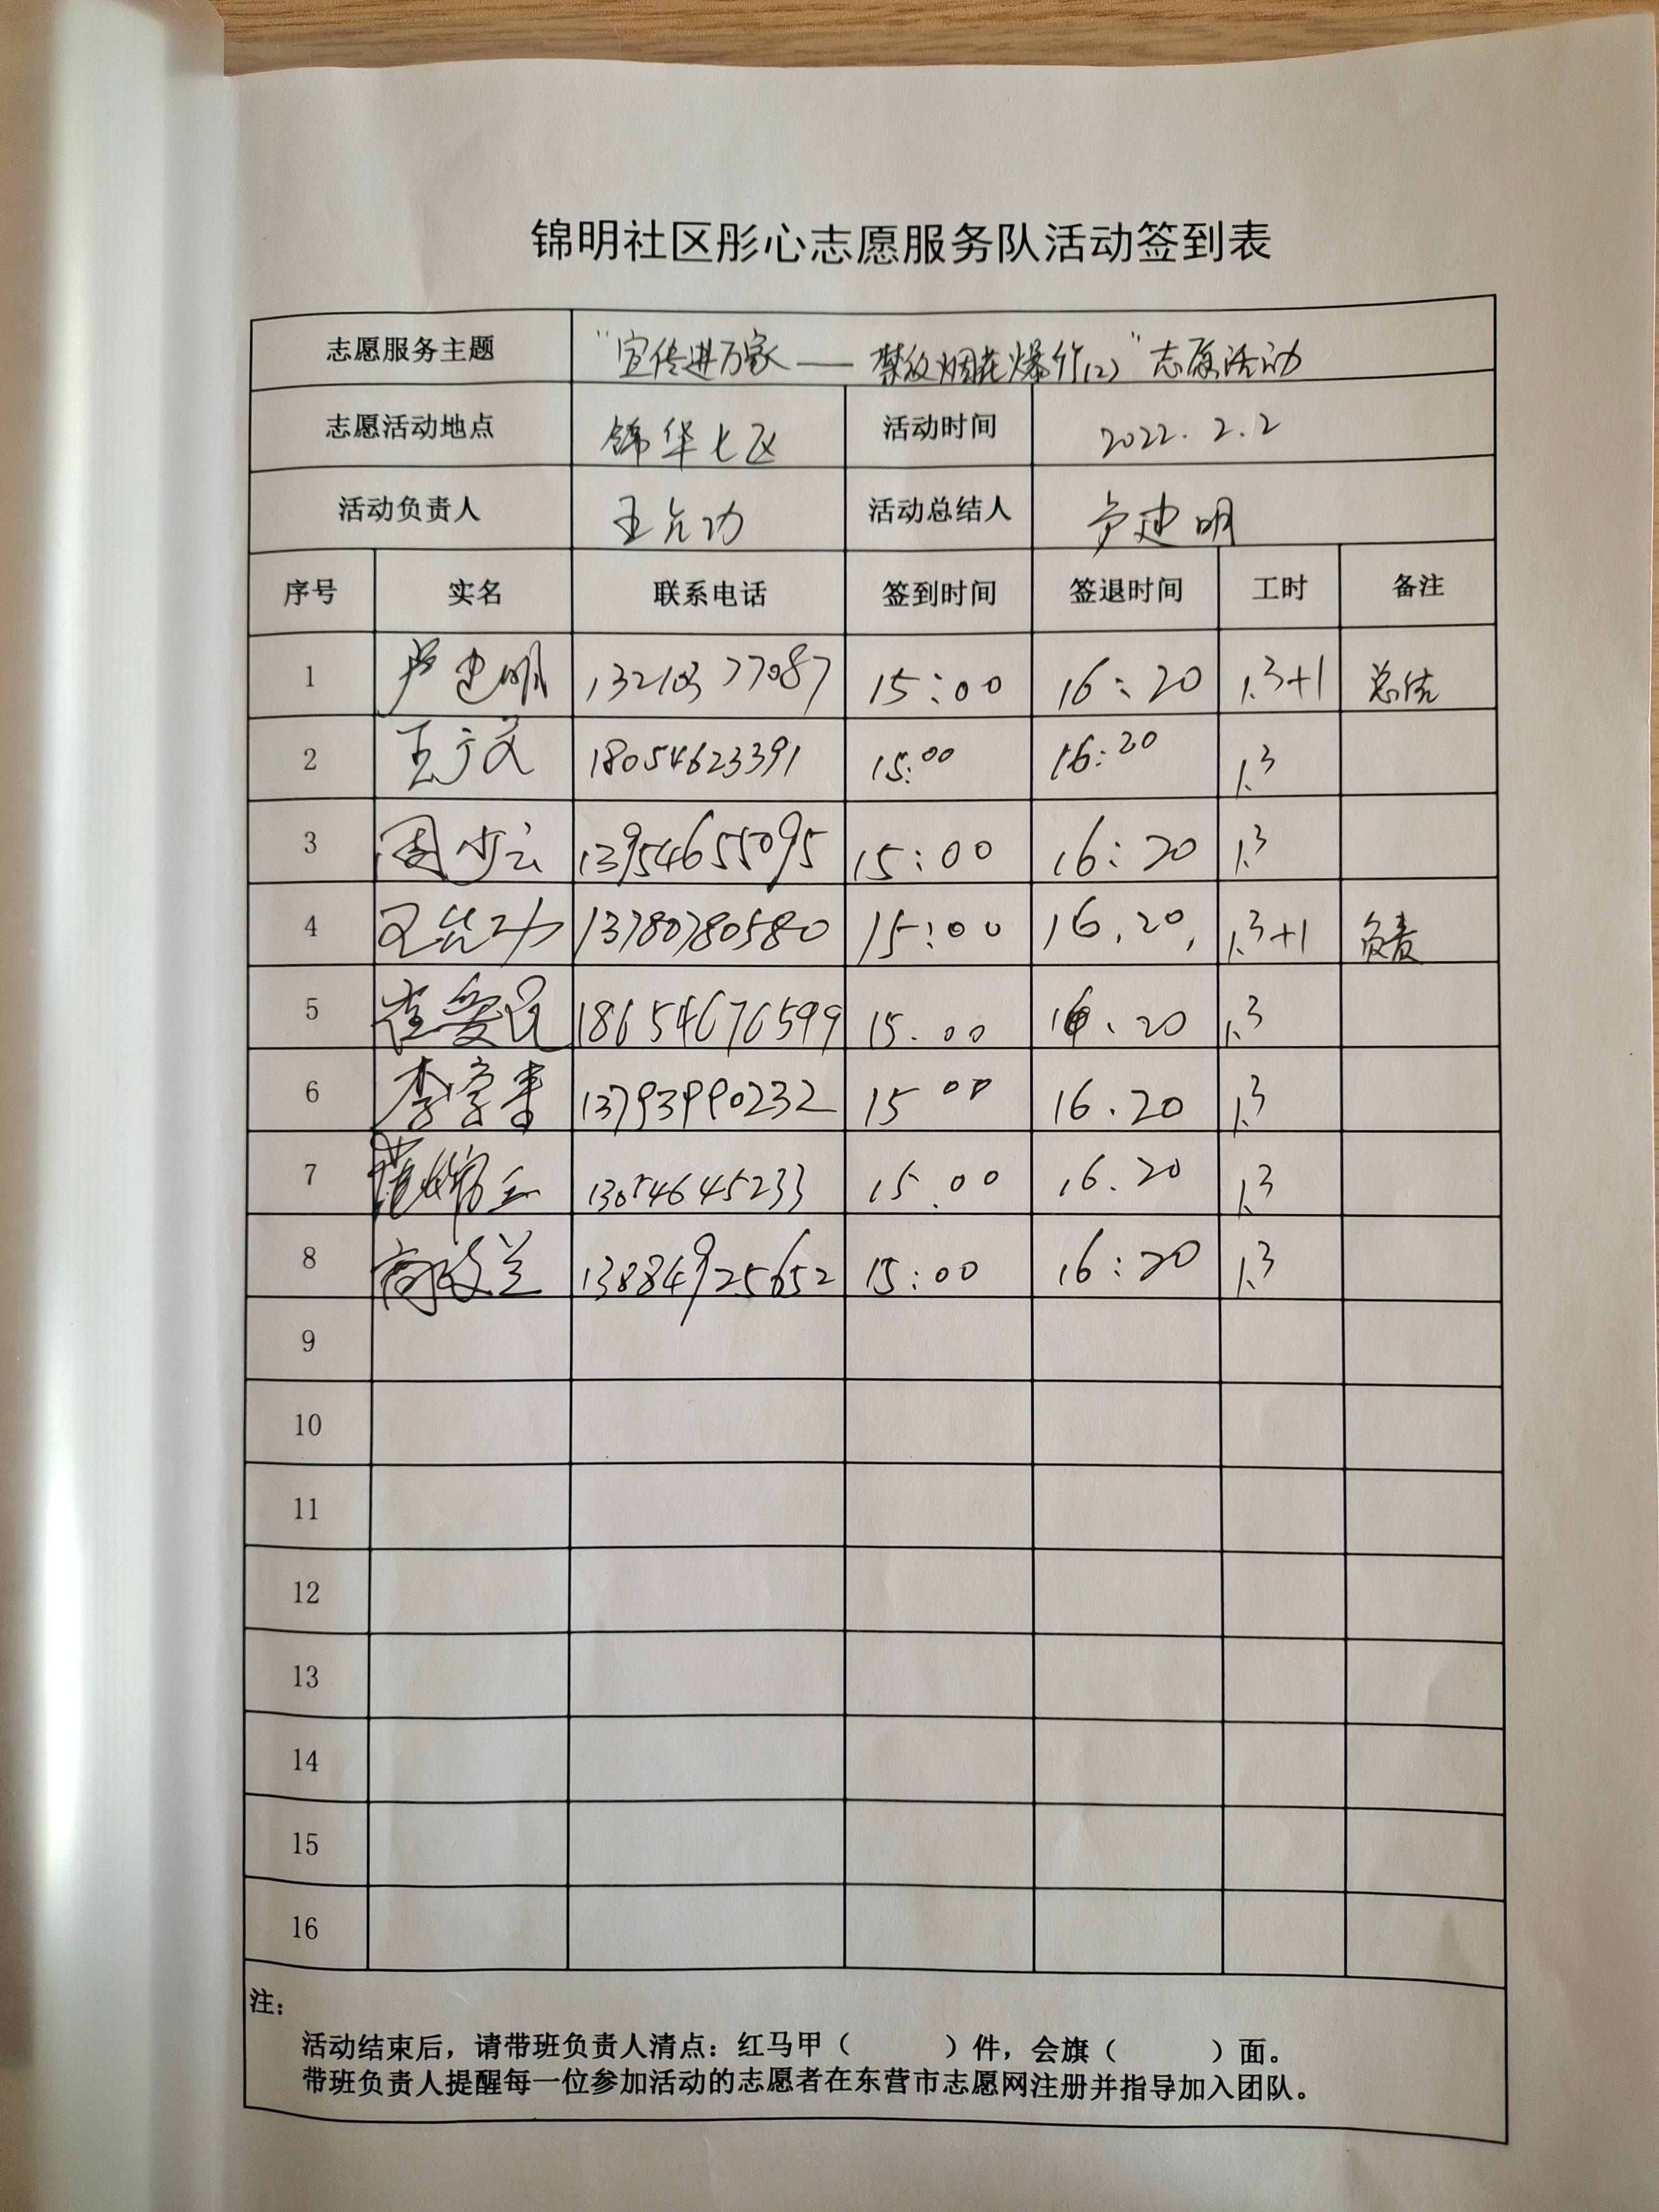 锦明社区彤心志愿服务队活动签到表
志愿服务主题 "宣传进万家——禁放烟花爆竹(2)"志愿活动
志愿活动地点 锦华七区 活动时间 2022.2.2
活动负责人 王允功 活动总结人 卢建明
序号 实名 联系电话 签到时间 签退时间 工时 备注
1 卢建明 13210377087 15:00 16:20 1.3+1 总结
2 王广文 18054623391 15:00 16:20 1.3
3 周少云 13954655095 15:00 16:20 1.3
4 王允功 13780780580 15:00 16.20. 1.3+1 负责
5 崔爱民 18654676599 15.00 16.20 1.3
6 13793990232 15 00 16.20 1.3
7 13054645233 15.00 16.20 1.3
8 13884925652 15:00 16:20 1.3
9
10
11
12
13
14
15
16
注:
活动结束后,请带班负责人清点:红马甲( )件,会旗( )面。
带班负责人提醒每一位参加活动的志愿者在东营市志愿网注册并指导加入团队。